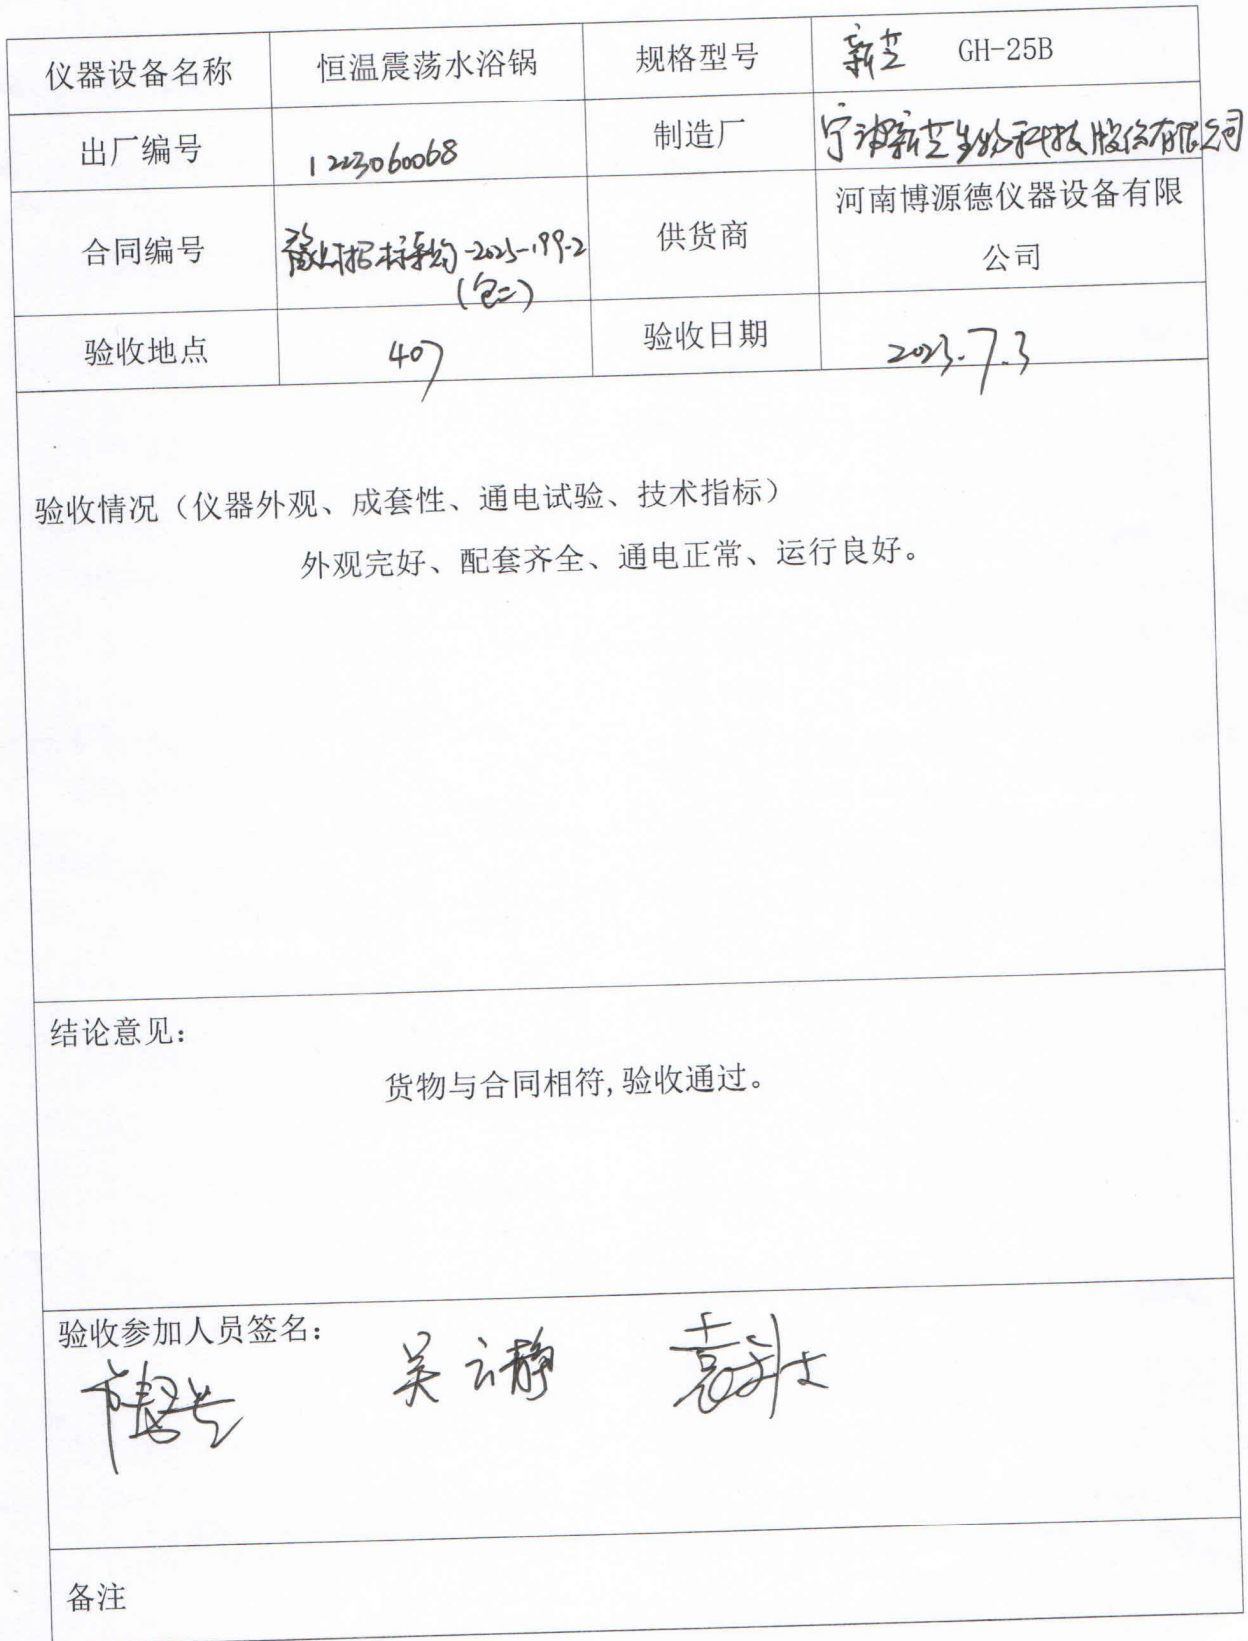 仪器设备名称 恒温震荡水浴锅 规格型号 新芝 GH-25B
出厂编号 1223060068 制造厂 宁波新芝生物科技股份有限公司
合同编号 招标采购-2023-199-2 (包二) 供货商 河南博源德仪器设备有限
公司
验收地点 407 验收日期 2023.7.3
验收情况（仪器外观、成套性、通电试验、技术指标）
外观完好、配套齐全、通电正常、运行良好。
结论意见：
货物与合同相符,验收通过。
验收参加人员签名：
吴云静
备注